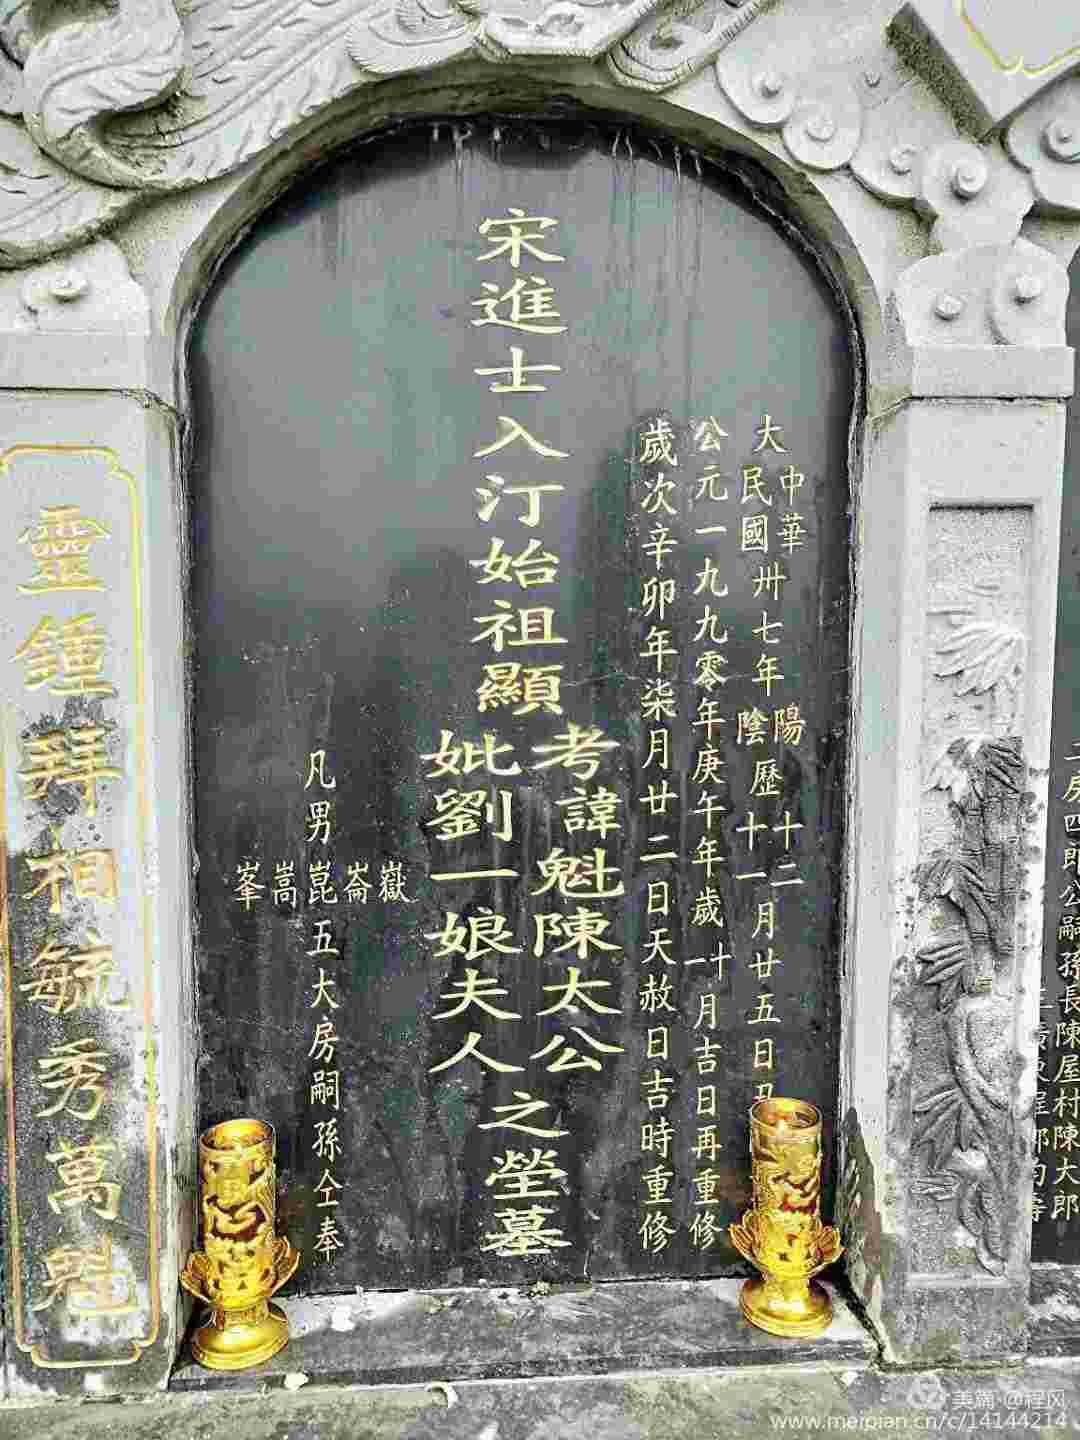 二房四郎公嗣孫長陳屋村陳大郎
大中華民國卅七年陽陰歷十二十一月廿五日丑
公元一九九零年庚午年歲十一月吉日再重修
歲次辛卯年柒月廿二日天赦日吉時重修
宋進士入汀始祖顯
考諱魁陳太公
妣劉一娘夫人
之塋墓
凡男
嶽崙崑嵩峯
五大房嗣孫仝奉
靈鍾拜相毓秀萬魁
美篇 @程风
www.meipian.cn/c/14144214